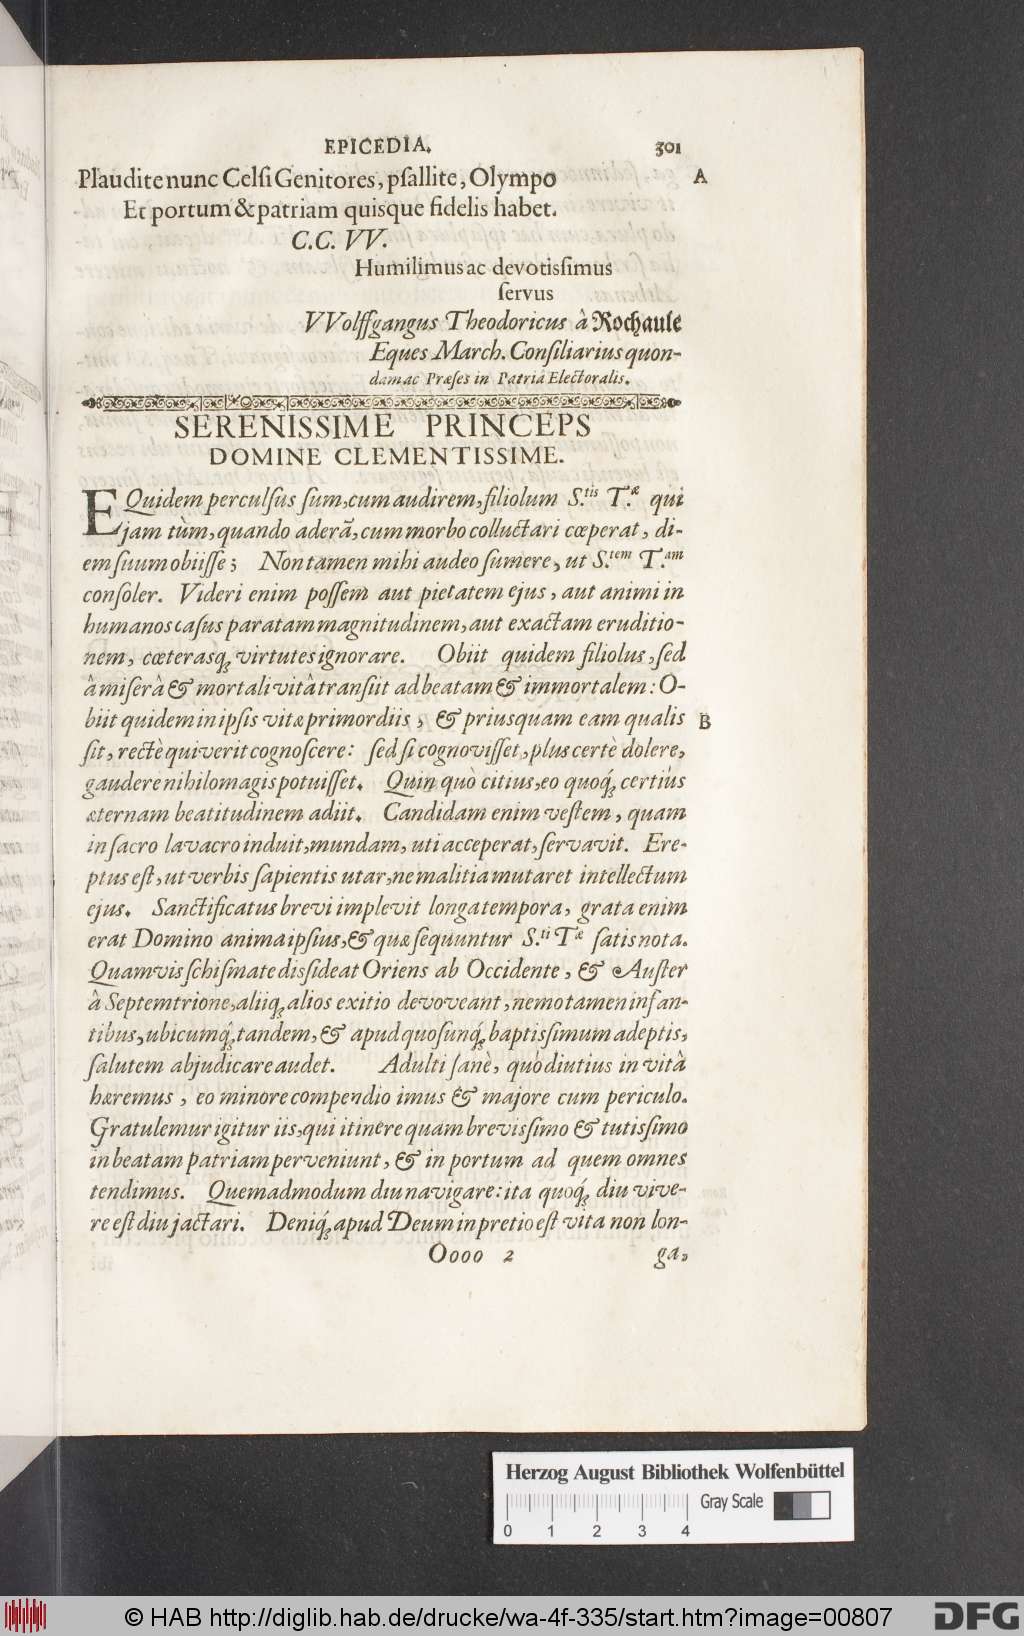 EPICEDIA. 301
Plaudite nunc Celſi Genitores, pſallite, Olympo A
Et portum & patriam quisque fidelis habet.
C.C. VV.
Humilimus ac devotisſimus
ſervus
VVolffgangus Theodoricus à Rochaule
Eques March. Conſiliarius quon-
dam ac Præſes in Patriâ Electoralis.
SERENISSIME PRINCEPS
DOMINE CLEMENTISSIME.
EQuidem perculſus ſum, cum audirem, filiolum S.tis T.æ qui
jam tùm, quando aderã, cum morbo colluctari cœperat, di-
em ſuum obiiſſe; Non tamen mihi audeo ſumere, ut S.tem T.am
conſoler. Videri enim poſſem aut pietatem ejus, aut animi in
humanos caſus paratam magnitudinem, aut exactam eruditio-
nem, cœterasq́; virtutes ignorare. Obiit quidem filiolus, ſed
â miſerâ & mortali vitâ transiit ad beatam & immortalem: O-
biit quidem in ipſis vitæ primordiis, & priusquam eam qualis B
ſit, rectè quiverit cognoſcere: ſed ſi cognoviſſet, plus certè dolere,
gaudere nihilo magis potuiſſet. Quin quò citius, eo quoq́; certiùs
æternam beatitudinem adiit. Candidam enim veſtem, quam
in ſacro lavacro induit, mundam, uti acceperat, ſervavit. Ere-
ptus eſt, ut verbis ſapientis utar, ne malitia mutaret intellectum
ejus. Sanctificatus brevi implevit longa tempora, grata enim
erat Domino anima ipſius, & quæ ſequuntur S.ti Tæ ſatis nota.
Quamvis ſchiſmate disſideat Oriens ab Occidente, & Auſter
â Septemtrione, aliiq́; alios exitio devoveant, nemo tamen infan-
tibus, ubicumq́; tandem, & apud quoſunq́; baptisſimum adeptis,
ſalutem abjudicare audet. Adulti ſanè, quò diutius in vitâ
hæremus, eo minore compendio imus & majore cum periculo.
Gratulemur igitur iis, qui itinere quam brevisſimo & tutisſimo
in beatam patriam perveniunt, & in portum ad quem omnes
tendimus. Quemadmodum diu navigare: ita quoq́; diu vive-
re eſt diu jactari. Deniq́; apud Deum in pretio eſt vita non lon-
Oooo 2 ga,
Herzog August Bibliothek Wolfenbüttel
Gray Scale
0 1 2 3 4
© HAB http://diglib.hab.de/drucke/wa-4f-335/start.htm?image=00807 DFG